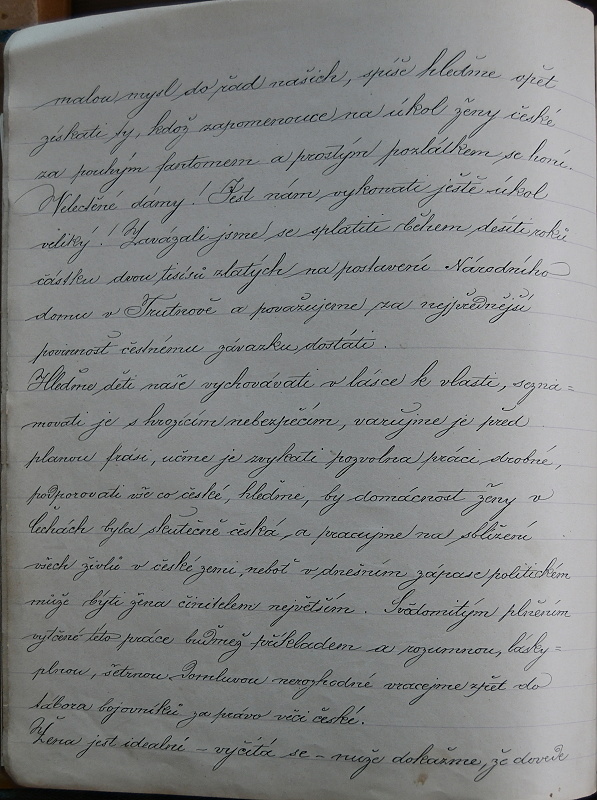 malou mysl do řad našich, spíše hleďme opět
získati ty, kdož zapomenouce na úkol ženy české
za pouhým fantomem a prostým pozlátkem se honí.
Velectěné dámy! Jest nám vykonati ještě úkol
veliký! Zavázali jsme se splatiti během desíti roků
částku dvou tisíců zlatých na postavení Národního
domu v Trutnově a považujeme za nejpřednější
povinnost čestnému závazku dostáti.
Hleďme děti naše vychovávati v lásce k vlasti, sezná=
movati je s hrozícím nebezpečím, varujme je před
planou frásí, učme je zvykati pozvolna práci drobné,
podporovati vše co české, hleďme, by domácnost ženy v
Čechách byla skutečně česká, a pracujme na sblížení
všech živlů v české zemi, neboť v dnešním zápase politickém
může býti žena činitelem největším. Svědomitým plněním
vytčené této práce buďmež příkladem a rozumnou, lásky=
plnou, šetrnou domluvou nerozhodné vracejme zpět do
tábora bojovníků za právo věci české.
Žena jest idealní – vyčítá se – nuže dokažme, že dovede